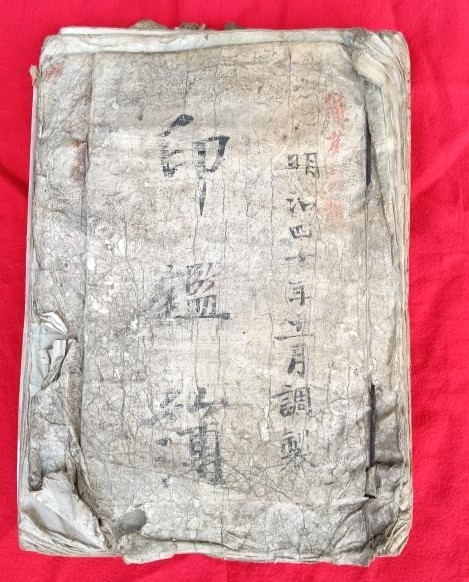 明治四十年五月調製
印鑑簿